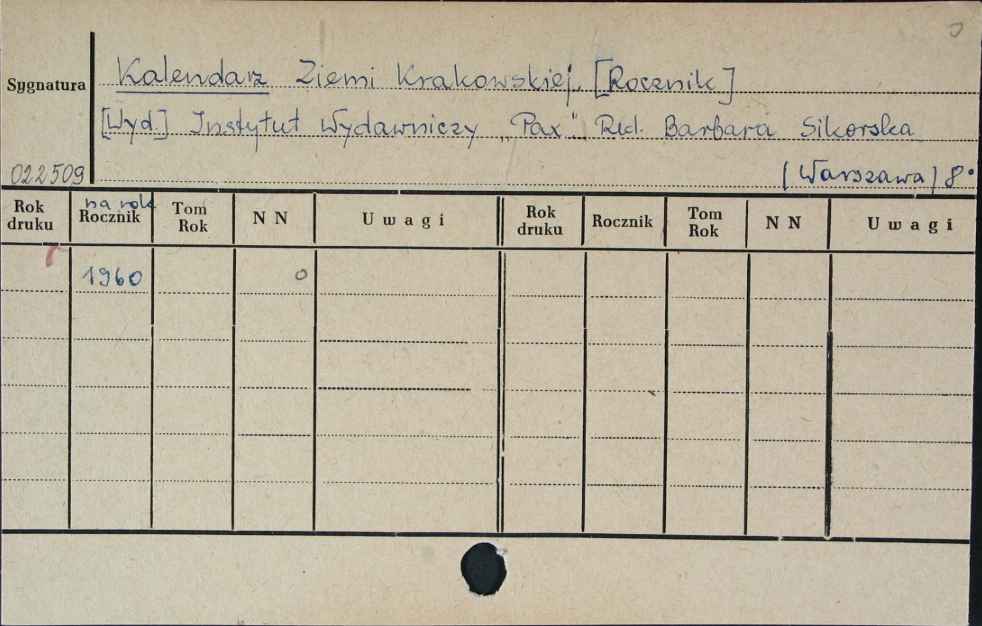 Sygnatura
Kalendarz Ziemi Krakowskiej. [Rocznik]
[Wyd.] Instytut Wydawniczy „Pax". Red. Barbara Sikorska
022509
(Warszawa) 8°
Rok druku
na rok
Rocznik
Tom Rok
N N
Uwagi
Rok druku
Rocznik
Tom Rok
N N
Uwagi
1960
0